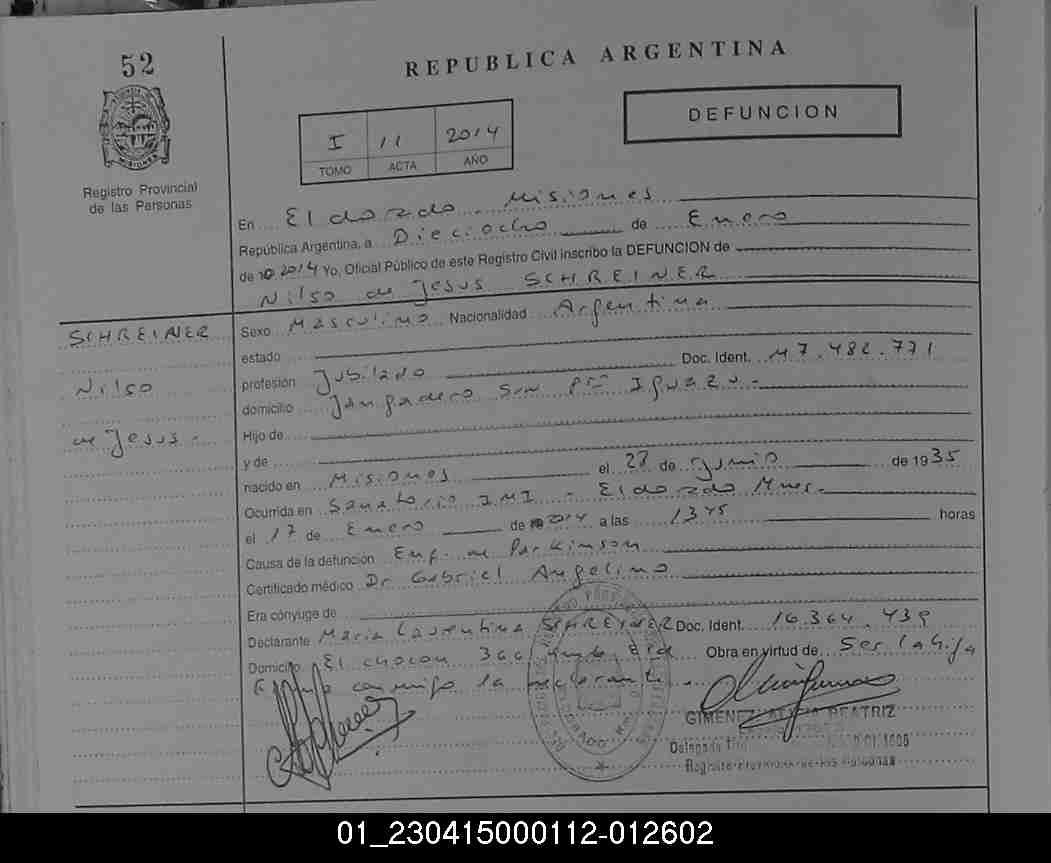 52
REPUBLICA ARGENTINA
DEFUNCION
I 11 2014
TOMO ACTA AÑO
Registro Provincial
de las Personas
En Eldorado Misiones
República Argentina, a Dieciocho de Enero
de 2014 Yo, Oficial Público de este Registro Civil inscribo la DEFUNCION de
Nilso de Jesus SCHREINER
SCHREINER
Nilso
de Jesus
Sexo Masculino Nacionalidad Argentina
estado
profesión Jubilado Doc. Ident. M 7.482.771
domicilio Jangadero S/N Pto Iguazu
Hijo de
y de
nacido en Misiones el 28 de Junio de 1935
Ocurrida en Sanatorio IMI - Eldorado Mnes.
el 17 de Enero de 2014 a las 1345 horas
Causa de la defunción Enf. de Parkinson
Certificado médico Dr Gabriel Angelino
Era cónyuge de
Declarante Maria Laurentina SCHREINER Doc. Ident. 16.364.439
Domicilio El chocon 366 Obra en virtud de Ser la hija
Firma conmigo la declarante
GIMENEZ, ALICIA BEATRIZ
Registro Provincial de las Personas
01_230415000112-012602